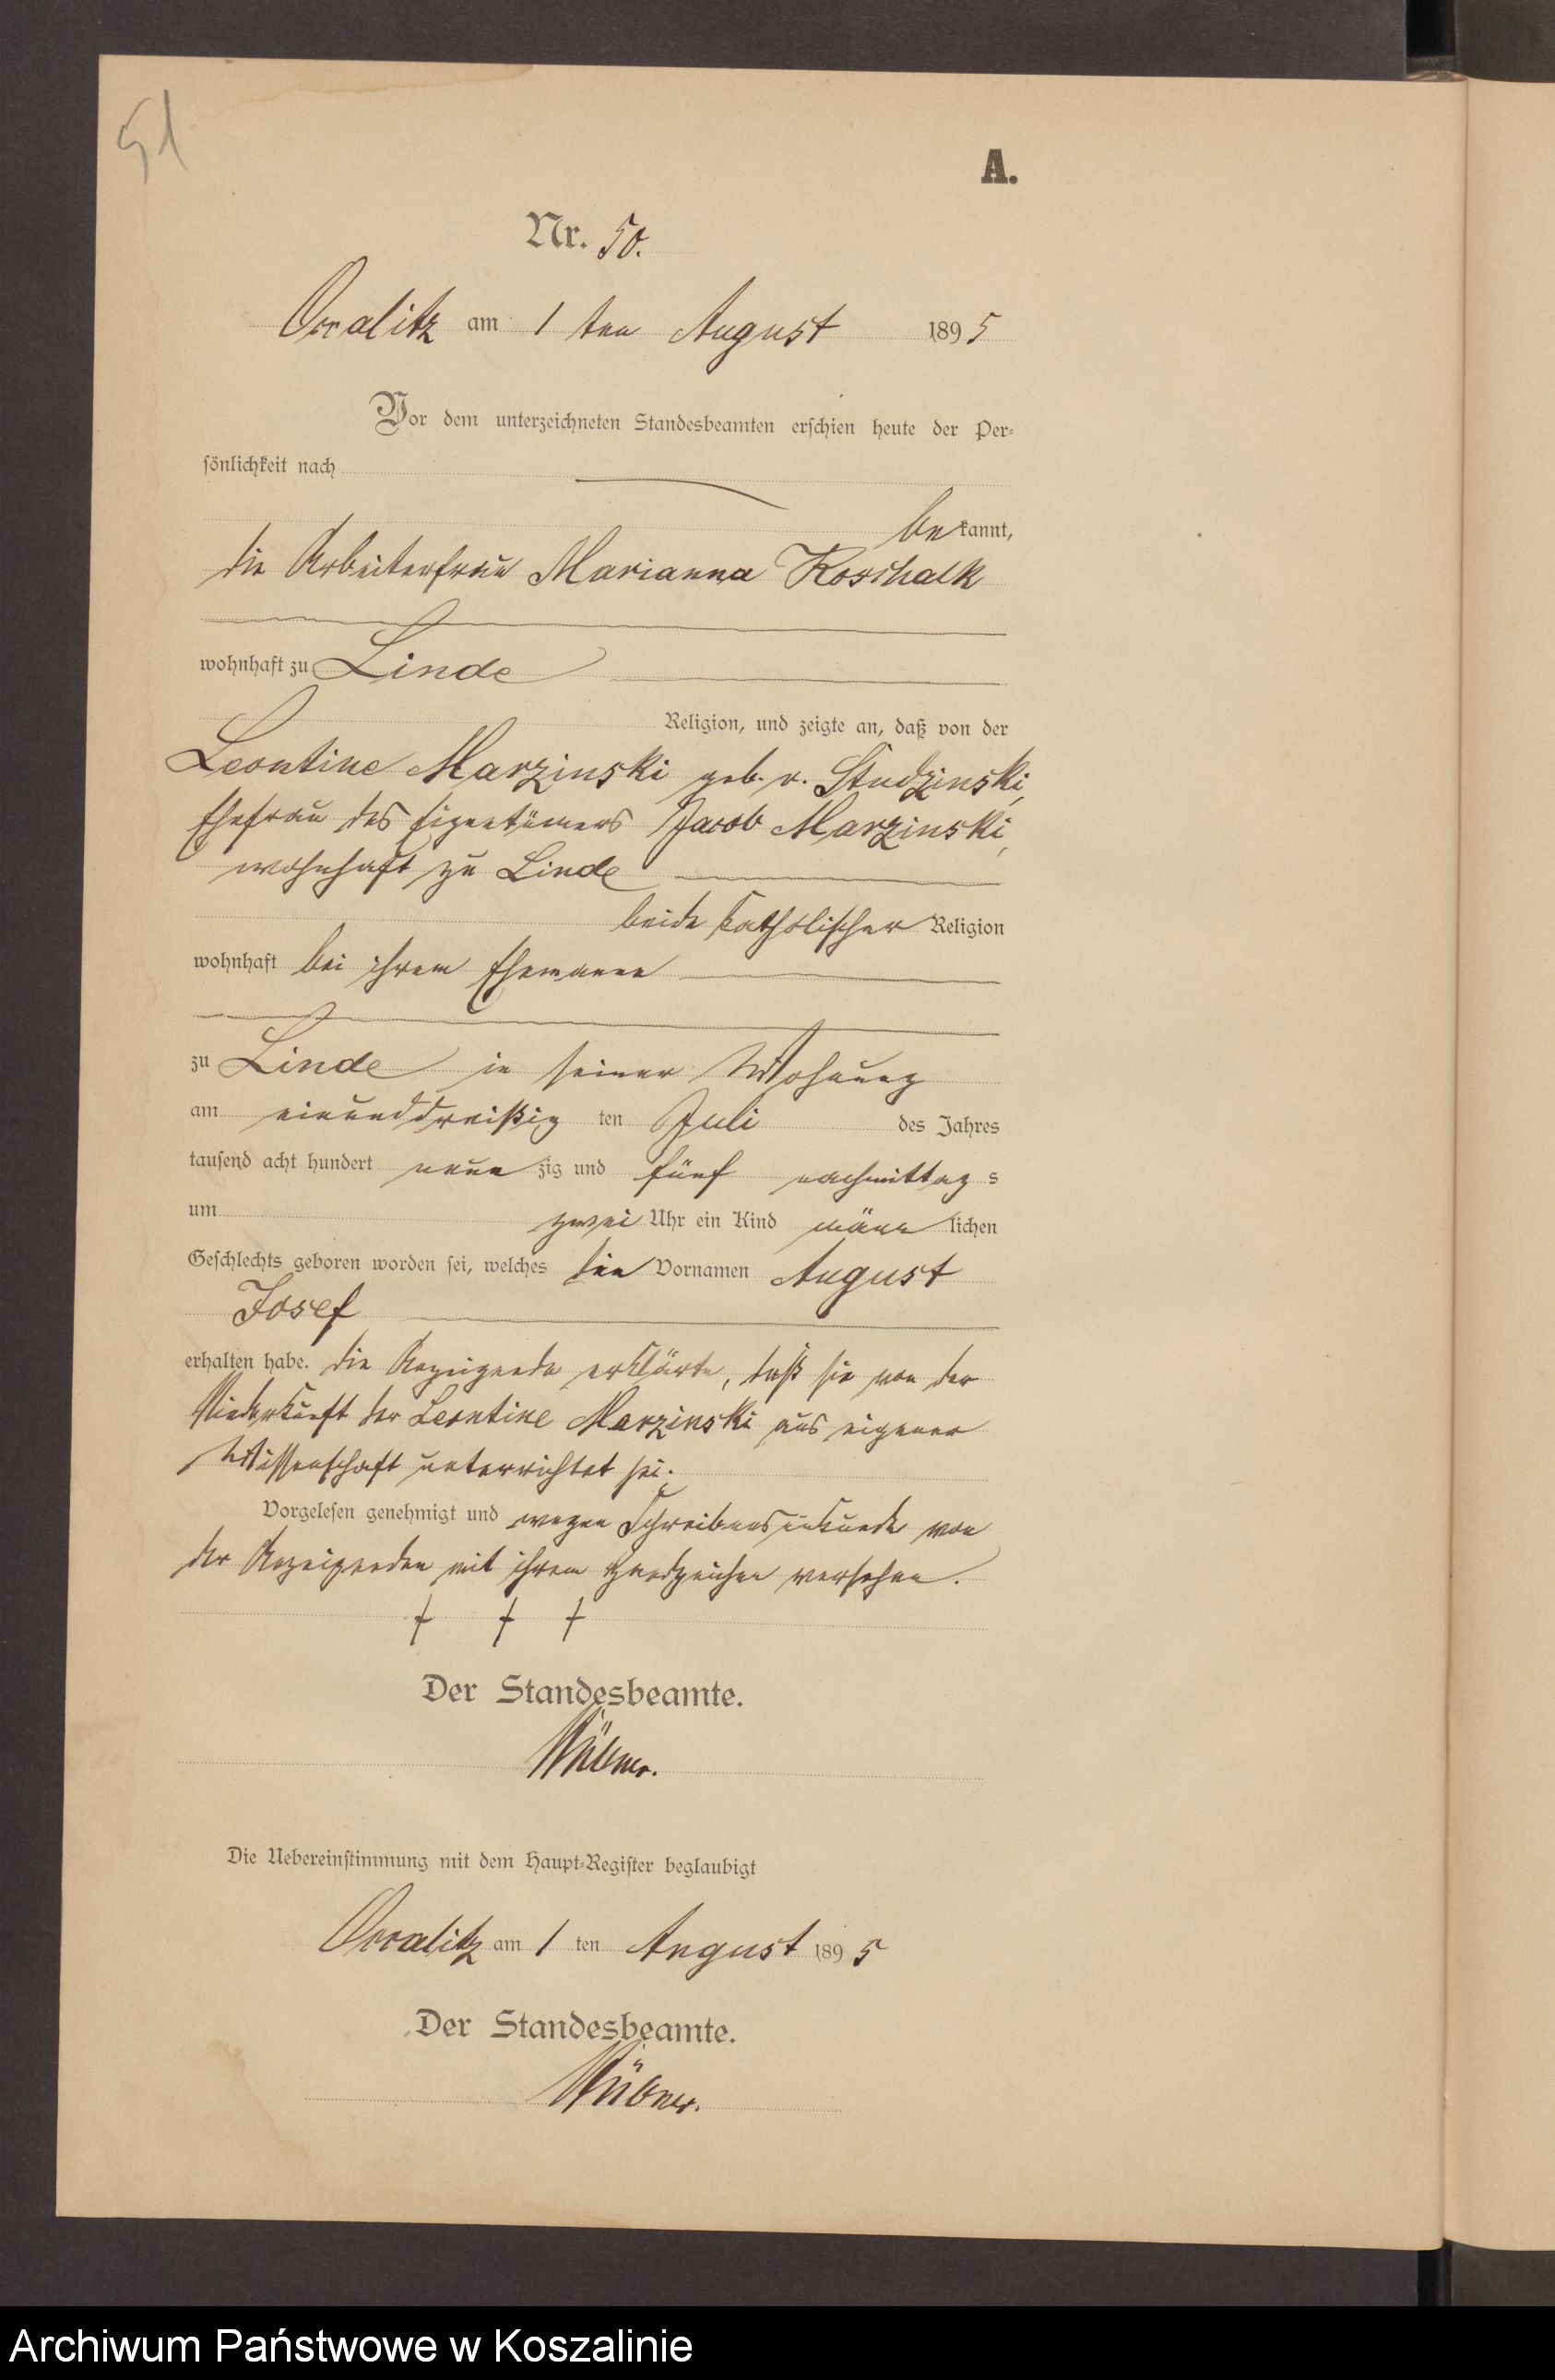 51
A.
Nr. 50.
Osralitz am 1 ten August 1895
Vor dem unterzeichneten Standesbeamten erschien heute der Per-
sönlichkeit nach
bekannt,
die Arbeiterfrau Marianna Koschalk
wohnhaft zu Linde
Religion, und zeigte an, daß von der
Leontine Marzinski geb. v. Studzinski,
Ehefrau des Eigentümers Jacob Marzinski,
wohnhaft zu Linde
beide katholischer Religion
wohnhaft bei ihrem Ehemanne
zu Linde in seiner Wohnung
am einunddreißig ten Juli des Jahres
tausend acht hundert neunzig und fünf nachmittags
um zwei Uhr ein Kind männlichen
Geschlechts geboren worden sei, welches die Vornamen August
Josef
erhalten habe. Die Anzeigende erklärte, daß sie von der
Niederkunft der Leontine Marzinski aus eigener
Wissenschaft unterrichtet sei.
Vorgelesen genehmigt und wegen Schreibensunkunde von
der Anzeigenden mit ihrem Handzeichen versehen.
† † †
Der Standesbeamte.
Die Uebereinstimmung mit dem Haupt-Register beglaubigt
Osralitz am 1 ten August 1895
Der Standesbeamte.
Archiwum Państwowe w Koszalinie